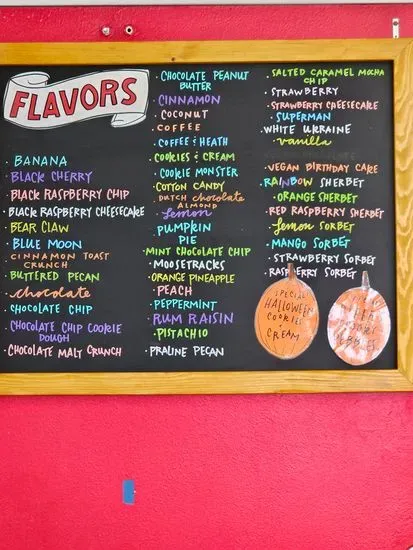 FLAVORS
· BANANA
· BLACK CHERRY
· BLACK RASPBERRY CHIP
· BLACK RASPBERRY CHEESECAKE
· BEAR CLAW
· BLUE MOON
· CINNAMON TOAST
CRUNCH
· BUTTERED PECAN
· chocolate
· CHOCOLATE CHIP
· CHOCOLATE CHIP COOKIE
DOUGH
· CHOCOLATE MALT CRUNCH
· CHOCOLATE PEANUT
BUTTER
· CINNAMON
· COCONUT
· COFFEE
· COFFEE & HEATH
· COOKIES & CREAM
· COOKIE MONSTER
· COTTON CANDY
· DUTCH chocolate
ALMOND
· Lemon
· PUMPKIN
PIE
· MINT CHOCOLATE CHIP
· MOOSETRACKS
· ORANGE PINEAPPLE
· PEACH
· PEPPERMINT
· RUM RAISIN
· PISTACHIO
· PRALINE PECAN
· SALTED CARAMEL MOCHA
CHIP
· STRAWBERRY
· STRAWBERRY CHEESECAKE
· SUPERMAN
· WHITE UKRAINE
· vanilla
· VEGAN BIRTHDAY CAKE
· RAINBOW SHERBET
· ORANGE SHERBET
· RED RASPBERRY SHERBET
· Lemon SORBET
· MANGO SORBET
· STRAWBERRY SORBET
· RASPBERRY SORBET
SPECIAL
HALLOWEEN
COOKIES
CREAM